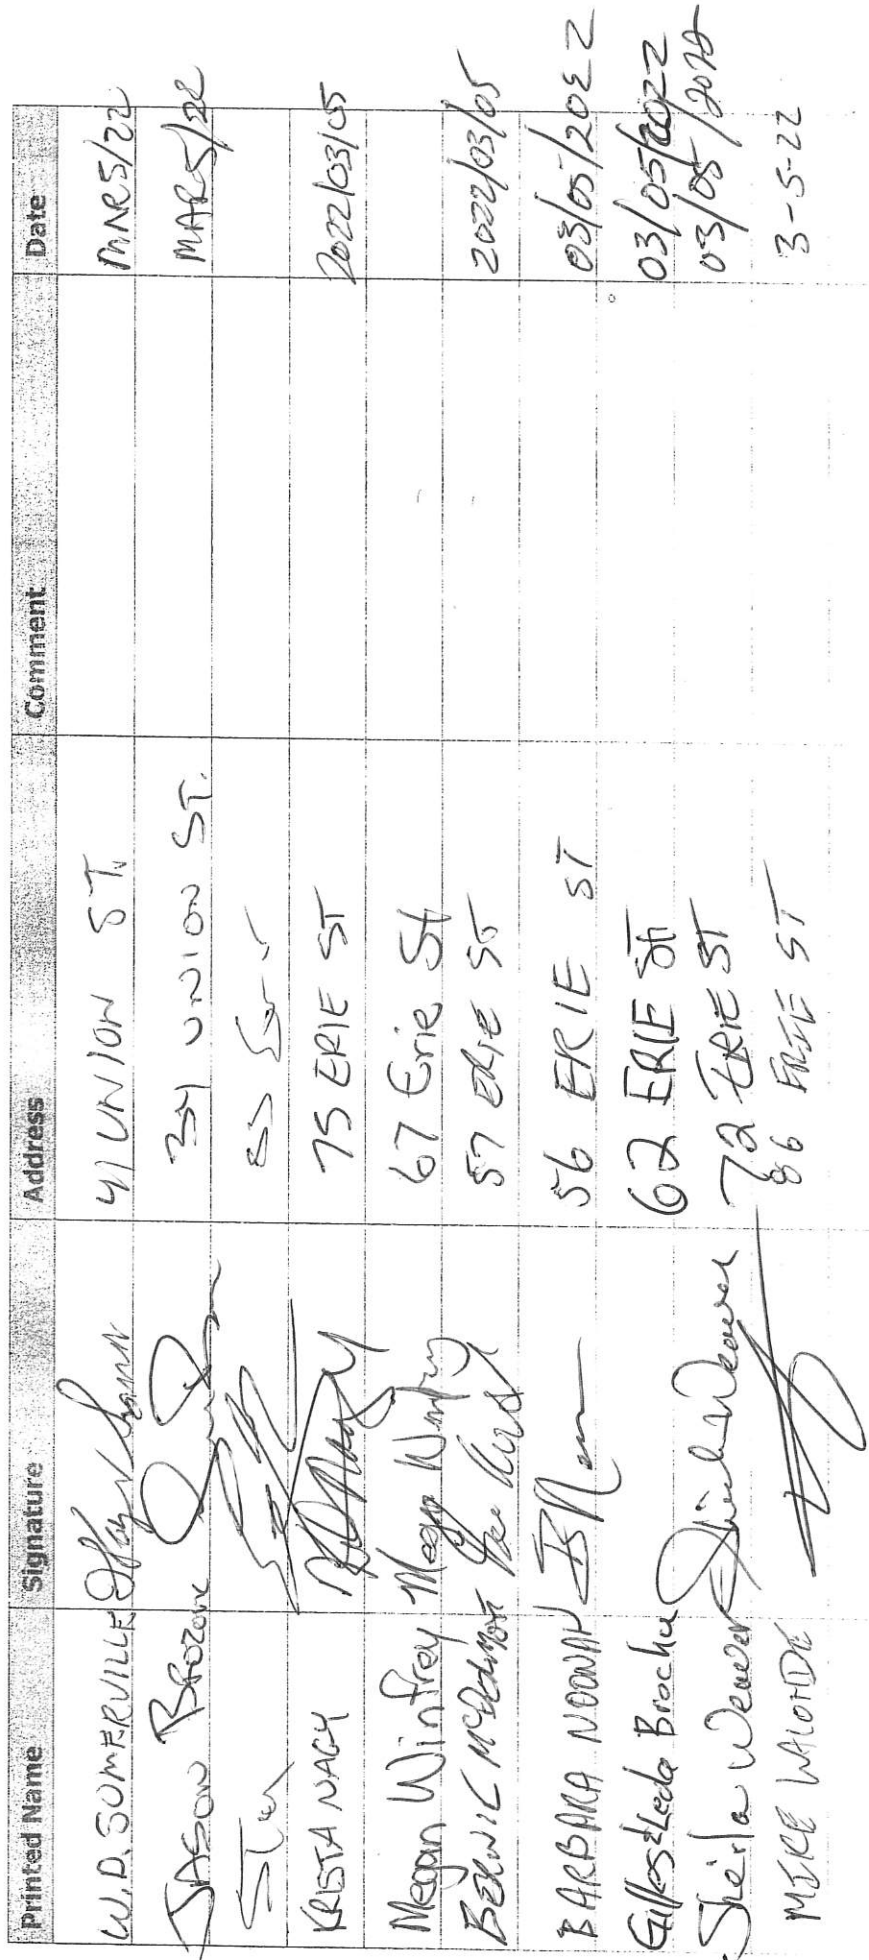 Printed Name Signature Address Comment Date
W.D. SOMERVILLE 41 UNION ST. MAR 5/22
JASON 34 UNION ST. MAR 5/22
KRISTA NAGY 75 ERIE ST 2022/03/05
Megan Winfrey Megan Winfrey 67 Erie St
57 ERIE ST 2022/03/05
BARBARA NOONAN 56 ERIE ST 03/05/2022
Gilles & Leda Brochu 62 ERIE St 03/05/2022
Sheila Weaver Sheila Weaver 72 ERIE ST 03/05/2022
MIKE 86 ERIE ST 3-5-22